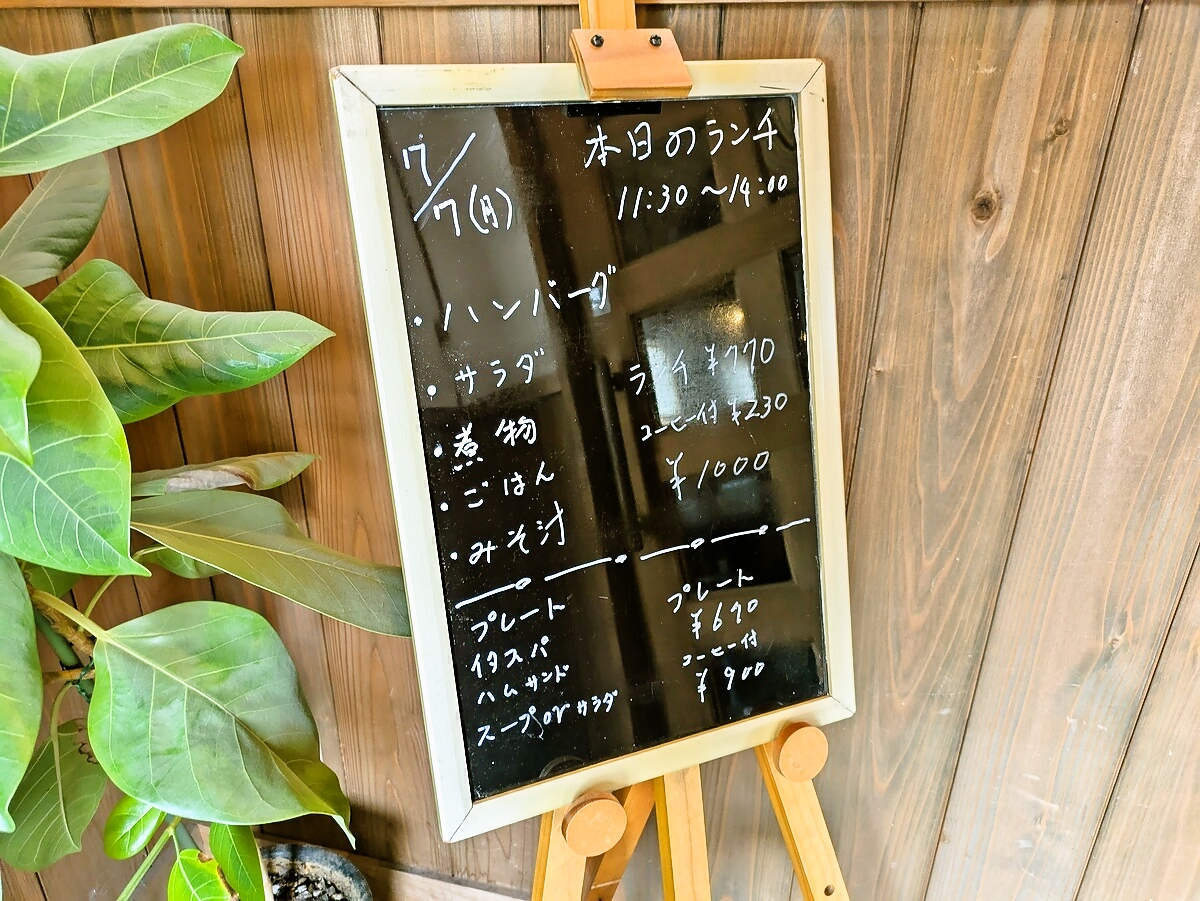 7/7(月)
本日のランチ
11:30～14:00
・ハンバーグ
・サラダ
・煮物
・ごはん
・みそ汁
ランチ ¥770
コーヒー付 ¥230
¥1000
プレート
イタスパ
ハムサンド
スープorサラダ
プレート
¥690
コーヒー付
¥900